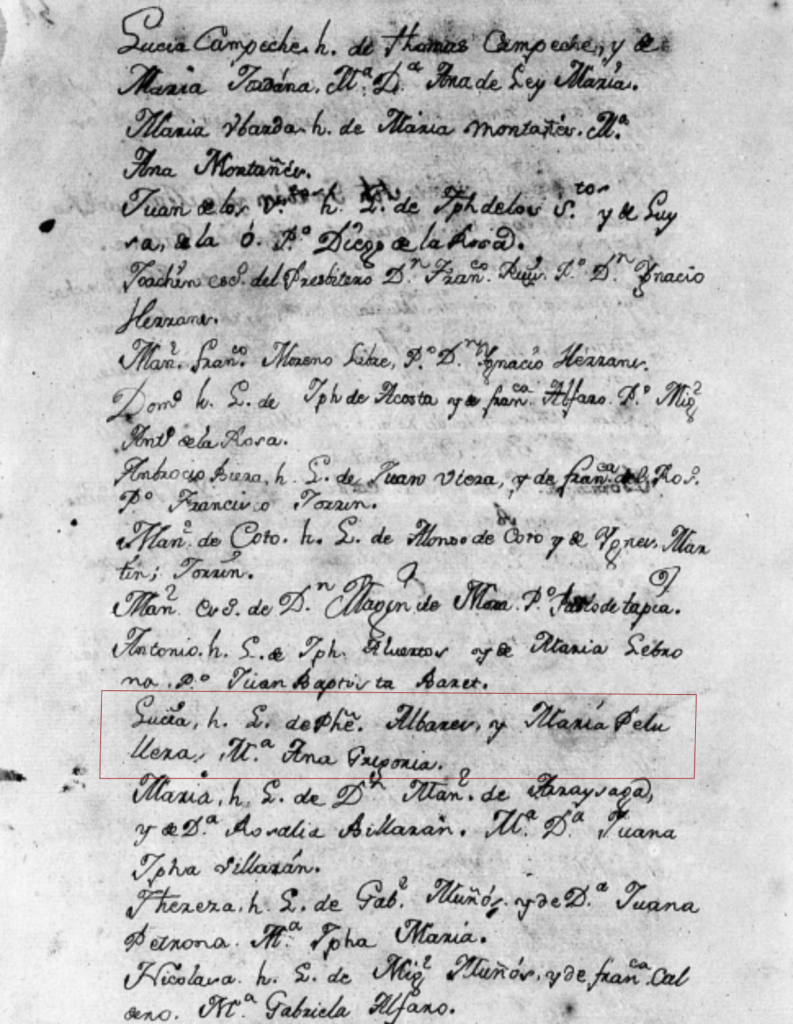 Lucia Campeche. h. de thomas Campeche, y de
Maria Jordána. Mª. Dª Ana de Ley Maria.
Maria h. de Maria Montañés. Mª.
Ana Montañés.
Juan de los h. L. de Jph de los S.tos y de Luy
sa, de la O. Pº Diego de la Rosa.
Joachin escº. del Presbitero Dn Franco. Ruiz. Pº. Dn Ygnacio
Herrans.
Manl. franco. Moreno Libre, Pº. Dn Ygnacio Herrans.
Domº h. L. de Jph de Acosta y de franca Alfaro. Pº Migl
Antº de la Rosa.
Ambrocio Biera, h. L. de Juan Viera, y de franca del Rosº.
Pº Francisco Torres.
Manl. de Coto. h. L. de Alonso de Coto y de Ygnes Mar
tin; Torres.
Manl. escº. de Dn Magin de Mora. Pº de tapia.
Antonio. h. L. de Jph. y de Maria Lebro
na. Pº Juan Baptista Baret.
Lucia, h. L. de Phe. Albares, y Maria Pelu
llera, Mª Ana Griporia.
Maria, h. L. de Dn Manl. de Araysaga,
y de Dª Rosalia Billarán. Mª Dª Juana
Jpha Villarán.
Thereza, h. L. de Gabl. Muños, y de Dª Juana
Petrona Mª Jpha Maria.
Nicolasa. h. L. de Migl Muñós, y de franca Cal
deno. Mª Gabriela Alfaro.